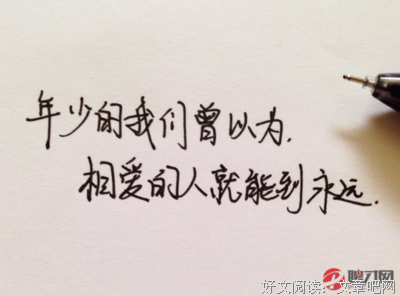 年少的我们曾以为.
相爱的人就能到永远.
好文阅读：文章吧网